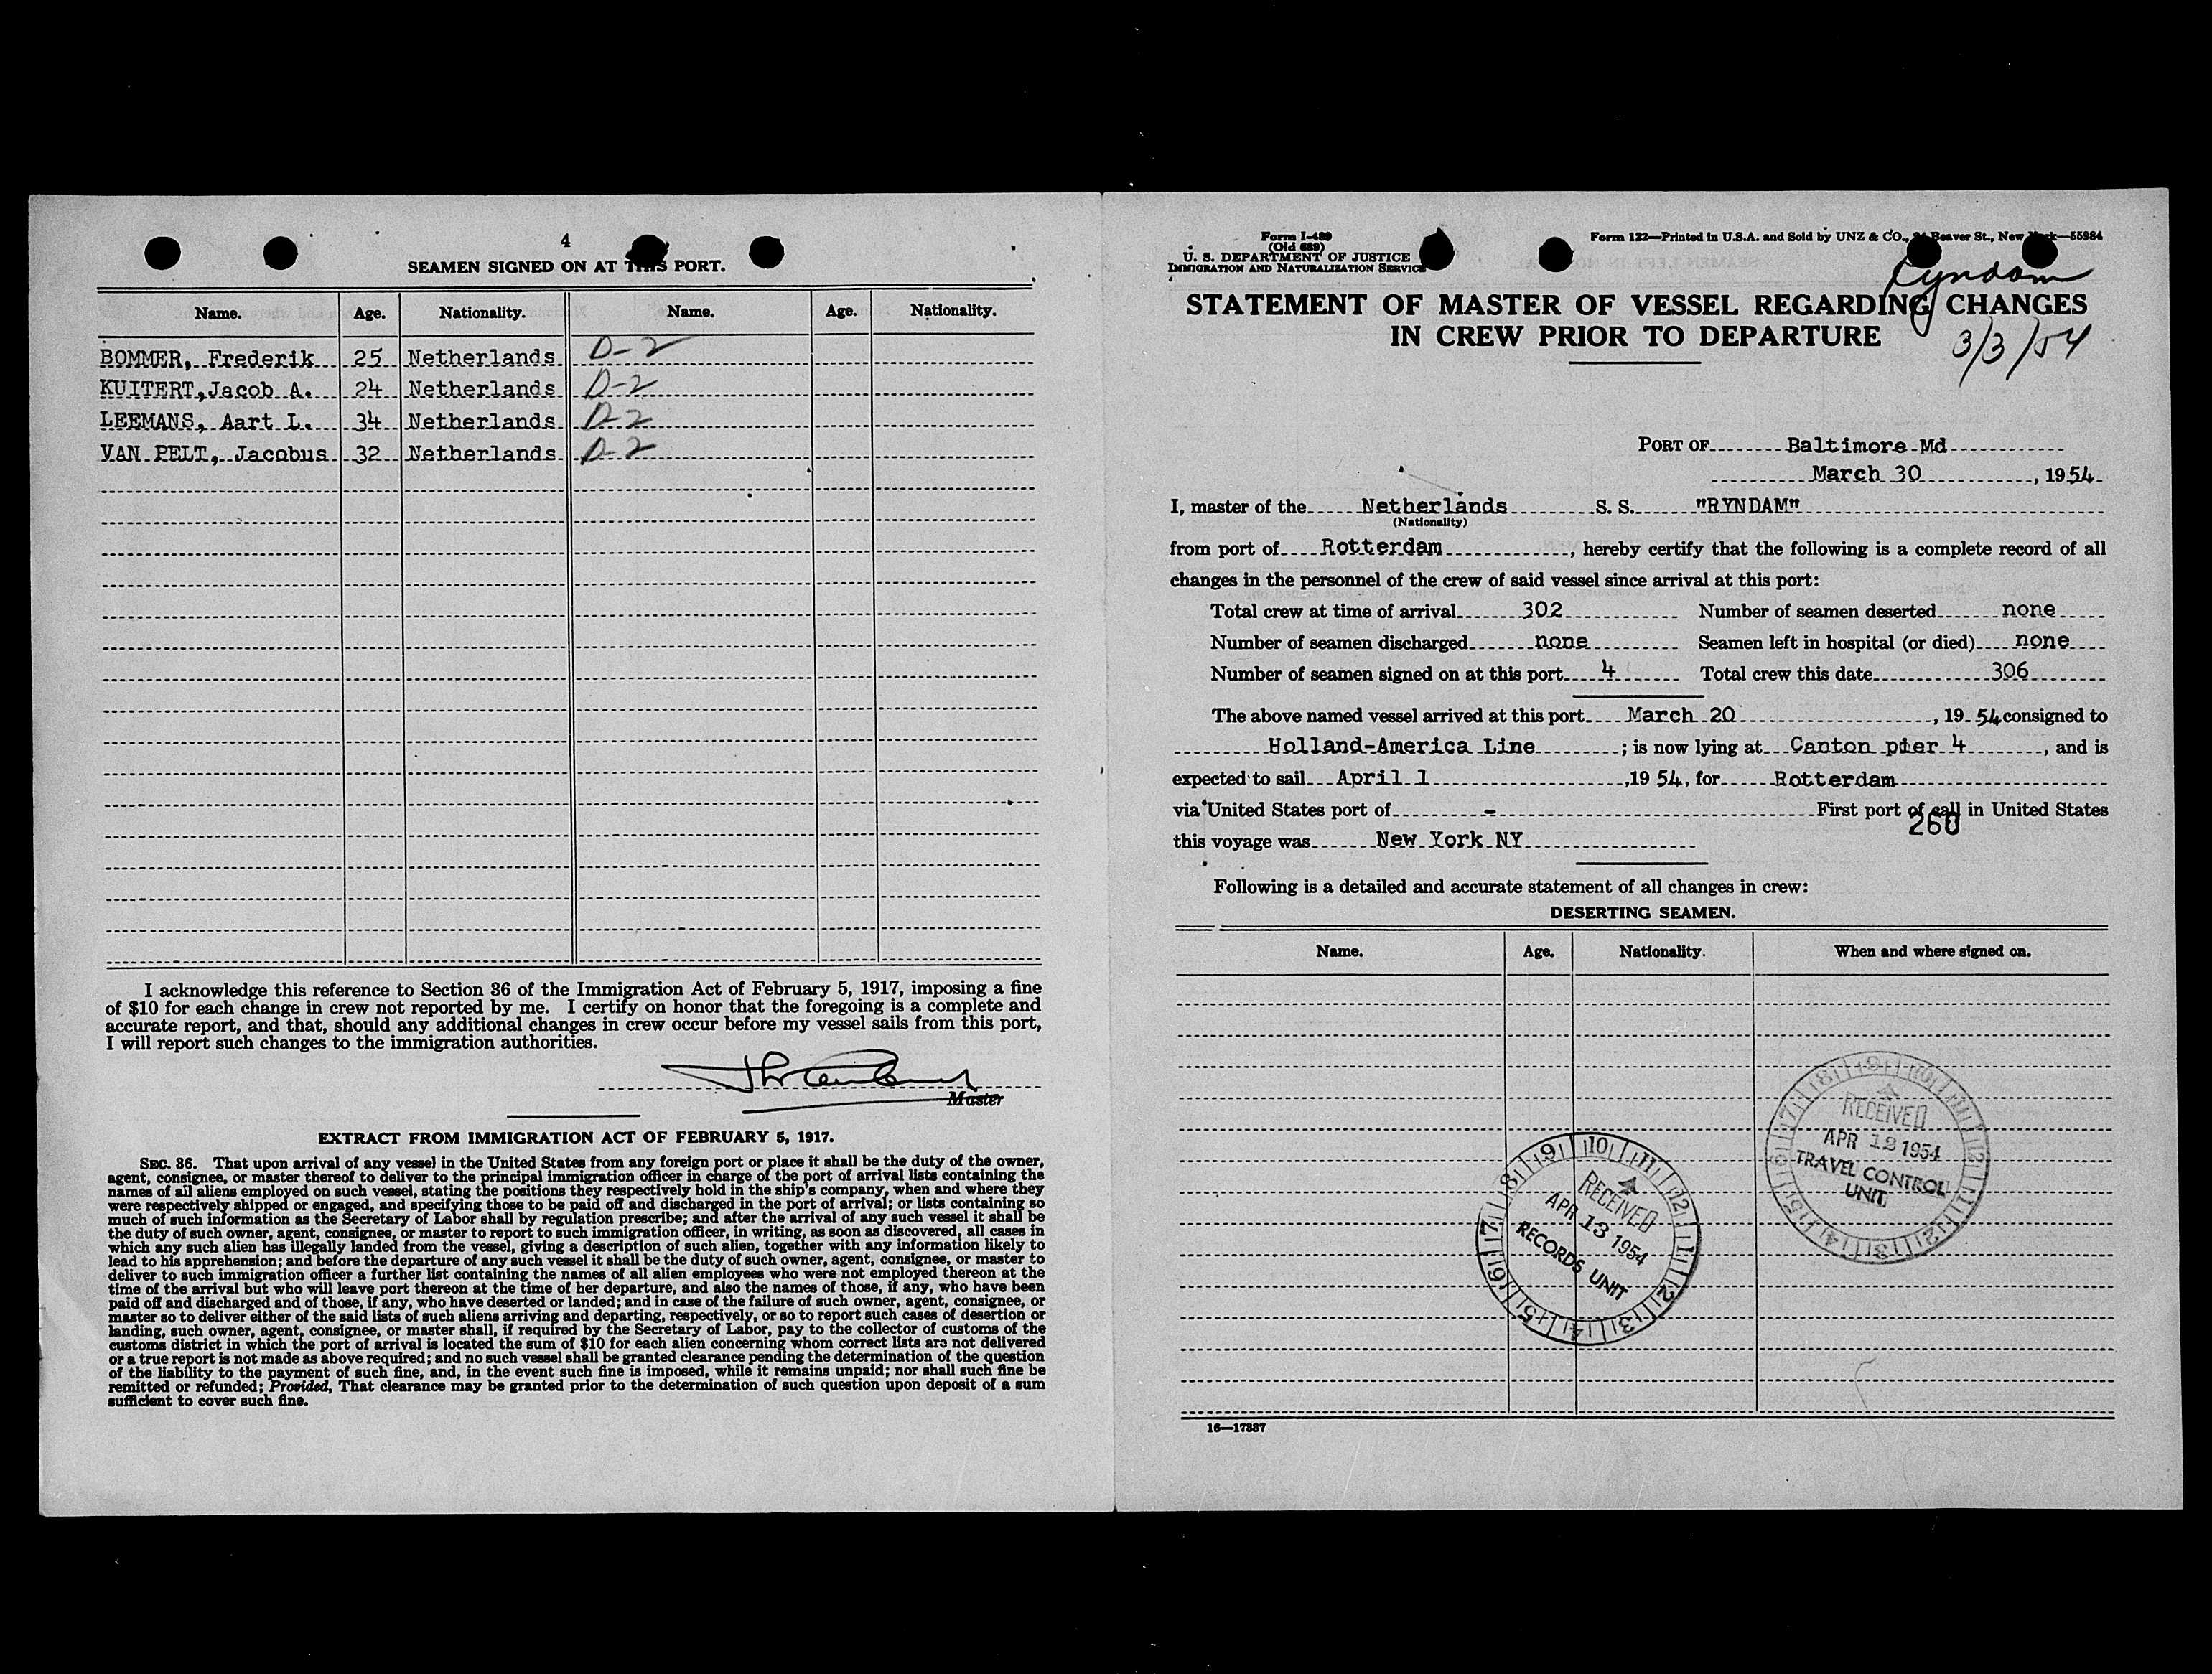 4
SEAMEN SIGNED ON AT THIS PORT.
Name. Age. Nationality. Name. Age. Nationality.
BOMMER, Frederik 25 Netherlands D-2
KUITERT, Jacob A. 24 Netherlands D-2
LEEMANS, Aart L. 34 Netherlands D-2
VAN PELT, Jacobus 32 Netherlands D-2
I acknowledge this reference to Section 36 of the Immigration Act of February 5, 1917, imposing a fine
of $10 for each change in crew not reported by me. I certify on honor that the foregoing is a complete and
accurate report, and that, should any additional changes in crew occur before my vessel sails from this port,
I will report such changes to the immigration authorities.
Master
EXTRACT FROM IMMIGRATION ACT OF FEBRUARY 5, 1917.
SEC. 36. That upon arrival of any vessel in the United States from any foreign port or place it shall be the duty of the owner,
agent, consignee, or master thereof to deliver to the principal immigration officer in charge of the port of arrival lists containing the
names of all aliens employed on such vessel, stating the positions they respectively hold in the ship's company, when and where they
were respectively shipped or engaged, and specifying those to be paid off and discharged in the port of arrival; or lists containing so
much of such information as the Secretary of Labor shall by regulation prescribe; and after the arrival of any such vessel it shall be
the duty of such owner, agent, consignee, or master to report to such immigration officer, in writing, as soon as discovered, all cases in
which any such alien has illegally landed from the vessel, giving a description of such alien, together with any information likely to
lead to his apprehension; and before the departure of any such vessel it shall be the duty of such owner, agent, consignee, or master to
deliver to such immigration officer a further list containing the names of all alien employees who were not employed thereon at the
time of the arrival but who will leave port thereon at the time of her departure, and also the names of those, if any, who have been
paid off and discharged and of those, if any, who have deserted or landed; and in case of the failure of such owner, agent, consignee, or
master so to deliver either of the said lists of such aliens arriving and departing, respectively, or so to report such cases of desertion or
landing, such owner, agent, consignee, or master shall, if required by the Secretary of Labor, pay to the collector of customs of the
customs district in which the port of arrival is located the sum of $10 for each alien concerning whom correct lists are not delivered
or a true report is not made as above required; and no such vessel shall be granted clearance pending the determination of the question
of the liability to the payment of such fine, and, in the event such fine is imposed, while it remains unpaid; nor shall such fine be
remitted or refunded; Provided, That clearance may be granted prior to the determination of such question upon deposit of a sum
sufficient to cover such fine.
Form I-489
(Old 689)
U. S. DEPARTMENT OF JUSTICE
IMMIGRATION AND NATURALIZATION SERVICE
Form 122—Printed in U.S.A. and Sold by UNZ & CO., Beaver St., New York—55984
Ryndam
STATEMENT OF MASTER OF VESSEL REGARDING CHANGES
IN CREW PRIOR TO DEPARTURE
3/3/54
PORT OF Baltimore Md
March 30, 1954
I, master of the Netherlands S. S. "RYNDAM"
(Nationality)
from port of Rotterdam, hereby certify that the following is a complete record of all
changes in the personnel of the crew of said vessel since arrival at this port:
Total crew at time of arrival 302 Number of seamen deserted none
Number of seamen discharged none Seamen left in hospital (or died) none
Number of seamen signed on at this port 4 Total crew this date 306
The above named vessel arrived at this port March 20, 19 54 consigned to
Holland-America Line; is now lying at Canton pier 4, and is
expected to sail April 1, 19 54, for Rotterdam
via United States port of - First port of call in United States
260
this voyage was New York NY
Following is a detailed and accurate statement of all changes in crew:
DESERTING SEAMEN.
Name. Age. Nationality. When and where signed on.
RECEIVED
APR 12 1954
TRAVEL CONTROL
UNIT
RECEIVED
APR 13 1954
RECORDS UNIT
16—17887